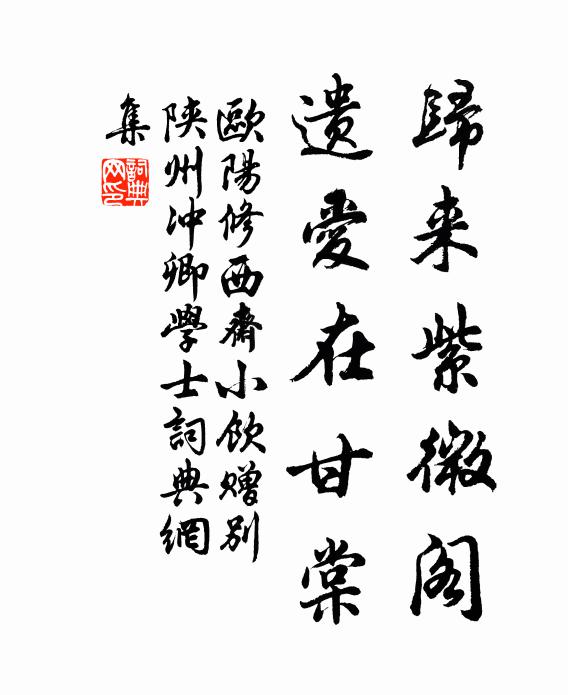 歸来紫微閣
遺愛在甘棠
歐陽修西齋小飲贈別
陝州沖卿學士詞典網
集
詞典网印